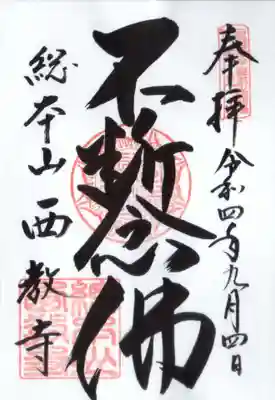 奉拝 令和四年九月四日
不断念佛
総本山西教寺